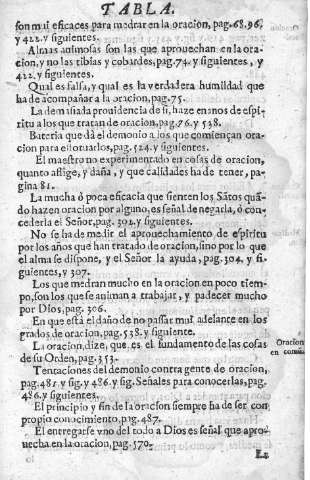 TABLA.
son mui eficaces para medrar en la oracion, pag. 68. 96.
y 422. y siguientes.
Almas animosas son las que aprouechan en la ora-
cion, y no las tibias y cobardes, pag. 74. y siguientes, y
422. y siguientes.
Qual es falsa, y qual es la verdadera humildad que
ha de acompañar a la oracion, pag. 75.
La demasiada prouidencia de si, haze enanos de espi-
ritu a los que tratan de oracion, pag. 76. y 538.
Bateria que dà el demonio a los que comiençan ora-
cion para estoruarlos, pag. 524. y siguientes.
El maestro no experimentado en cosas de oracion,
quanto aflige, y daña, y que calidades ha de tener, pa-
gina 81.
La mucha ò poca eficacia que sienten los Sãtos quã-
do hazen oracion por alguno, es señal de negarla, ò con-
cederla el Señor, pag. 302. y siguientes.
No se ha de medir el aprouechamiento de espiritu
por los años que han tratado de oracion, sino por lo que
el alma se dispone, y el Señor la ayuda, pag. 304. y si-
guientes, y 307.
Los que medran mucho en la oracion en poco tiem-
po, son los que se animan a trabajar, y padecer mucho
por Dios, pag. 306.
En que està el daño de no passar mas adelante en los
grados de oracion, pag. 538. y siguiente.
La oracion, dize, que es el fundamento de las cosas
de su Orden, pag. 353.
Oracion
en comun
Tentaciones del demonio contra gente de oracion,
pag. 481. y sig. y 486. y sig. Señales para conocerlas, pag.
486. y siguientes.
El principio y fin de la oracion siempre ha de ser con
propio conocimiento, pag. 487.
El entregarse vno del todo a Dios es señal que apro-
uecha en la oracion, pag. 570.